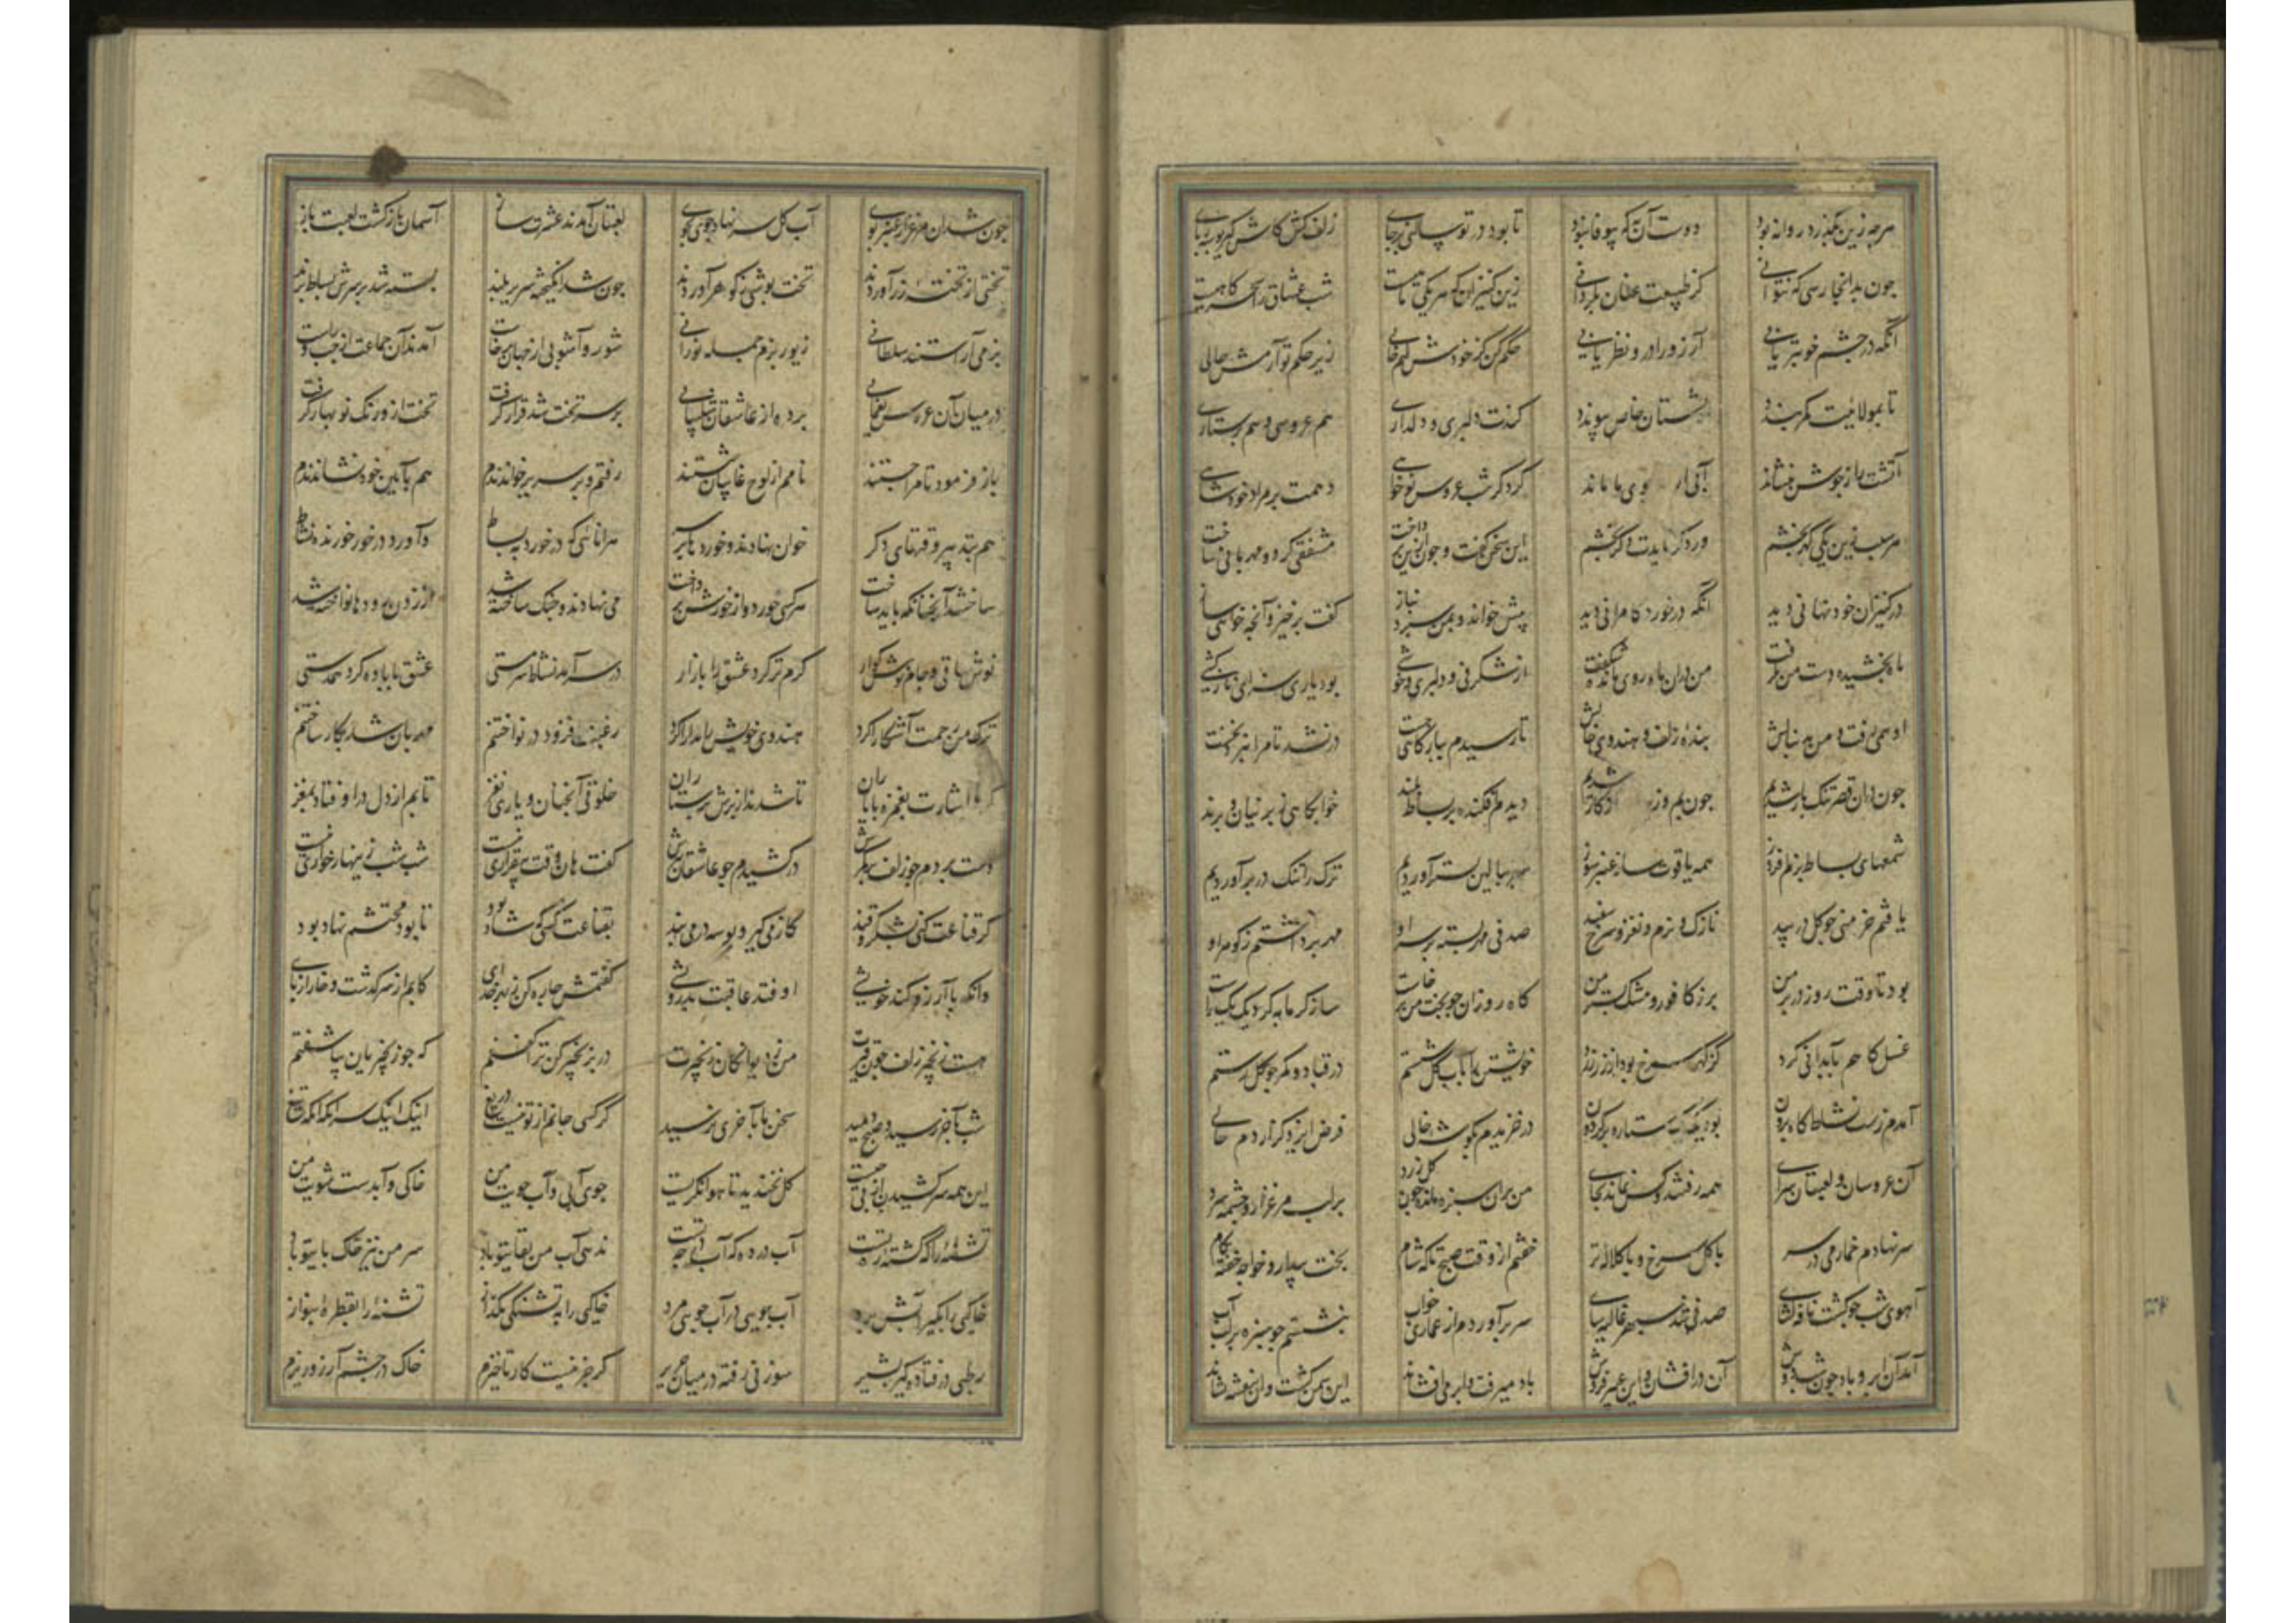 هرچه زین بگذرد روا نبود دوست آن که بیوفا نبود تا بود در تو ساکنی بر جای زلف کش گاز گیر و بوسه ربای
چون بدانجا رسی که نتوانی کز طبیعت عنان بگردانی زین کنیزان که هر یکی ماهیست شب عشاق را سحرگاهیست
آنکه در چشم خوبتر یابی آرزو را درو نظر یابی حکم کن کز خودش کنم خالی زیر حکم تو آرمش حالی
تا بمولائیت کمر بندد بشبستان خاص پیوندد کندت دلبری و دلداری هم عروسی و هم پرستاری
آتشت را ز جوش بنشاند آبی از جوی ما ماند گر دگر شب عروس نو خواهی دهمت بر مراد خود شاهی
هر شب زین یکی گهر بخشم ور دگر بایدت دگر بخشم این سخن گفت و چون ازین پرداخت مشفقی کرد و مهربانی ساخت
در کنیزان خود نهانی دید آنکه درخورد کامرانی دید پیش خواند و بمن سپرد بناز گفت برخیز و آنچه خواهی ساز
ماه بخشیده دست من بگرفت من در آن ماه روی مانده شگفت از شگرفی و دلبری و خوشی بود یاری سزای نازکشی
او همی رفت و من بدنبالش بنده زلف و هندوی خالش تا رسیدم ببارگاهی چست درنشد تا مرا نبرد نخست
چون در آن قصر تنگ بار شدیم چون بم و زیر سازگار شدیم دیدم افکنده بر بساط بلند خوابگاهی ز پرنیان و پرند
شمعهای بساط بزم افروز همه یاقوت ساز و عنبر سوز سر ببالین بستر آوردیم ترک را تنگ در بر آوردیم
یافتم خرمنی چو گل در بید نازک و نرم و نغز و سرخ و سفید صدفی مهر بسته بر سر او مهر برداشتم ز گوهر او
بود تا وقت روز در بر من بر ز کافور و مشک بستر من گاه روز آن چو بخت من برخاست ساز گرمابه کرد یک یک راست
غسل گاهم بآبدانی کرد کز گهر سرخ بود و از زر زرد خویشتن را بآب گل شستم در قبا و کمر چو گل رستم
آمدم زان نشاط گاه برون بود یک یک ستاره بر گردون در خزیدم بگوشه خالی فرض ایزد گزاردم حالی
آن عروسان و لعبتان سرای همه رفتند و کس نماند بجای من بر آن سبزه مانده چون گل زرد بر لب مرغزار و چشمه سرد
سر نهادم خمار می در سر با گل سرخ و با گلاله تر خفتم از وقت صبح تا گه شام بخت بیدار و خواجه خفته بکام
آهوی شب چو گشت نافه گشای صدفی شد سپهر غالیه سای سر برآوردم از عماری خواب بنشستم چو سبزه بر لب آب
آمد آن ابر و باد چون شب دوش آن درافشان و این عبیر فروش باد میرفت و ابر می افشاند این سمن کشت و آن بنفشه نشاند
چون شد آن مرغزار عنبر بوی آب گل سر نهاد جوی بجوی لعبتان آمدند عشرت ساز آسمان باز گشت لعبت باز
تختی از تخته زر آوردند تخت پوشی ز گوهر آوردند چون شد انگیخته سریر بلند بسته شد بر سرش بساط پرند
بزمی آراستند سلطانی زیور بزم جمله نورانی شور و آشوبی از جهان برخاست آمدند آن جماعت از چپ و راست
در میان آن عروس یغمایی برده از عاشقان شکیبایی بر سر تخت شد قرار گرفت تخت از او رنگ نو بهار گرفت
باز فرمود تا مرا جستند نامم از لوح غایبان شستند رفتم و بر سریر خواندندم هم بآیین خود نشاندندم
هم بترتیب و قتهای دگر خوان نهادند و خورد هرانائی که درخورد ببساط وآورد در خورد خورنده نشاط
ساختند آنچنانکه باید ساخت هر کسی خورد و از خورش پرداخت می نهادند و چنگ ساخته شد از زدن رودها نواخته شد
نوش ساقی و جام نوش گوار گرم تر کرد عشق را بازار در سر آمد نشاط سرمستی عشق با باده کرد همدستی
ترک من رحمت آشکارا کرد هندوی خویش را مدارا کرد رغبت افزود در نواختنم مهربان شد بکار ساختنم
کرد اشارت بغمزه با یاران تا شدند از برش پرستاران خلوتی آنچنان و یاری نغز تابم از دل در اوفتاد بمغز
دست بردم چو زلف در کمرش درکشیدم چو عاشقان ببرش گفت هان وقت بیقراری نیست شب شب زینهار خواری نیست
گر قناعت کنی بشکر و قند گاز می گیر و بوسه در می بند بقناعت کسی که شاد بود تا بود محتشم نهاد بود
وانکه با آرزو کند خویشی اوفتد عاقبت بدرویشی گفتمش چاره کن ز بهر خدای کابم از سر گذشت و خار از پای
هست زنجیر زلف چون قیرت من ز دیوانگان زنجیرت در بزنجیر کن ترا گفتم که چو زنجیریان بیاشفتم
شب بآخر رسید و صبح دمید سخن ما بآخری نرسید گر کشی جانم از تو نیست دریغ اینک اینک سر آنک آنک تیغ
این همه سر کشیدن از پی چیست گل نخندید تا هوا نگریست جوی آبی و آب جویت من خاکی و آبدست شویت من
تشنه را که گشته راست آب در ده که آب ندهی آب من بقا بتو باد سر من نیز خاک با بتو باد
خاکیی را بگیر آبش برد آب جویی در آب جویی مرد خاکیی را به تشنگی مگذار تشنه را بقطره بنواز
رطبی در فتاده گیر بشیر سوزنی رفته در میان حریر گر جز اینست کار تا خیزم خاک در چشم آرزو ریزم